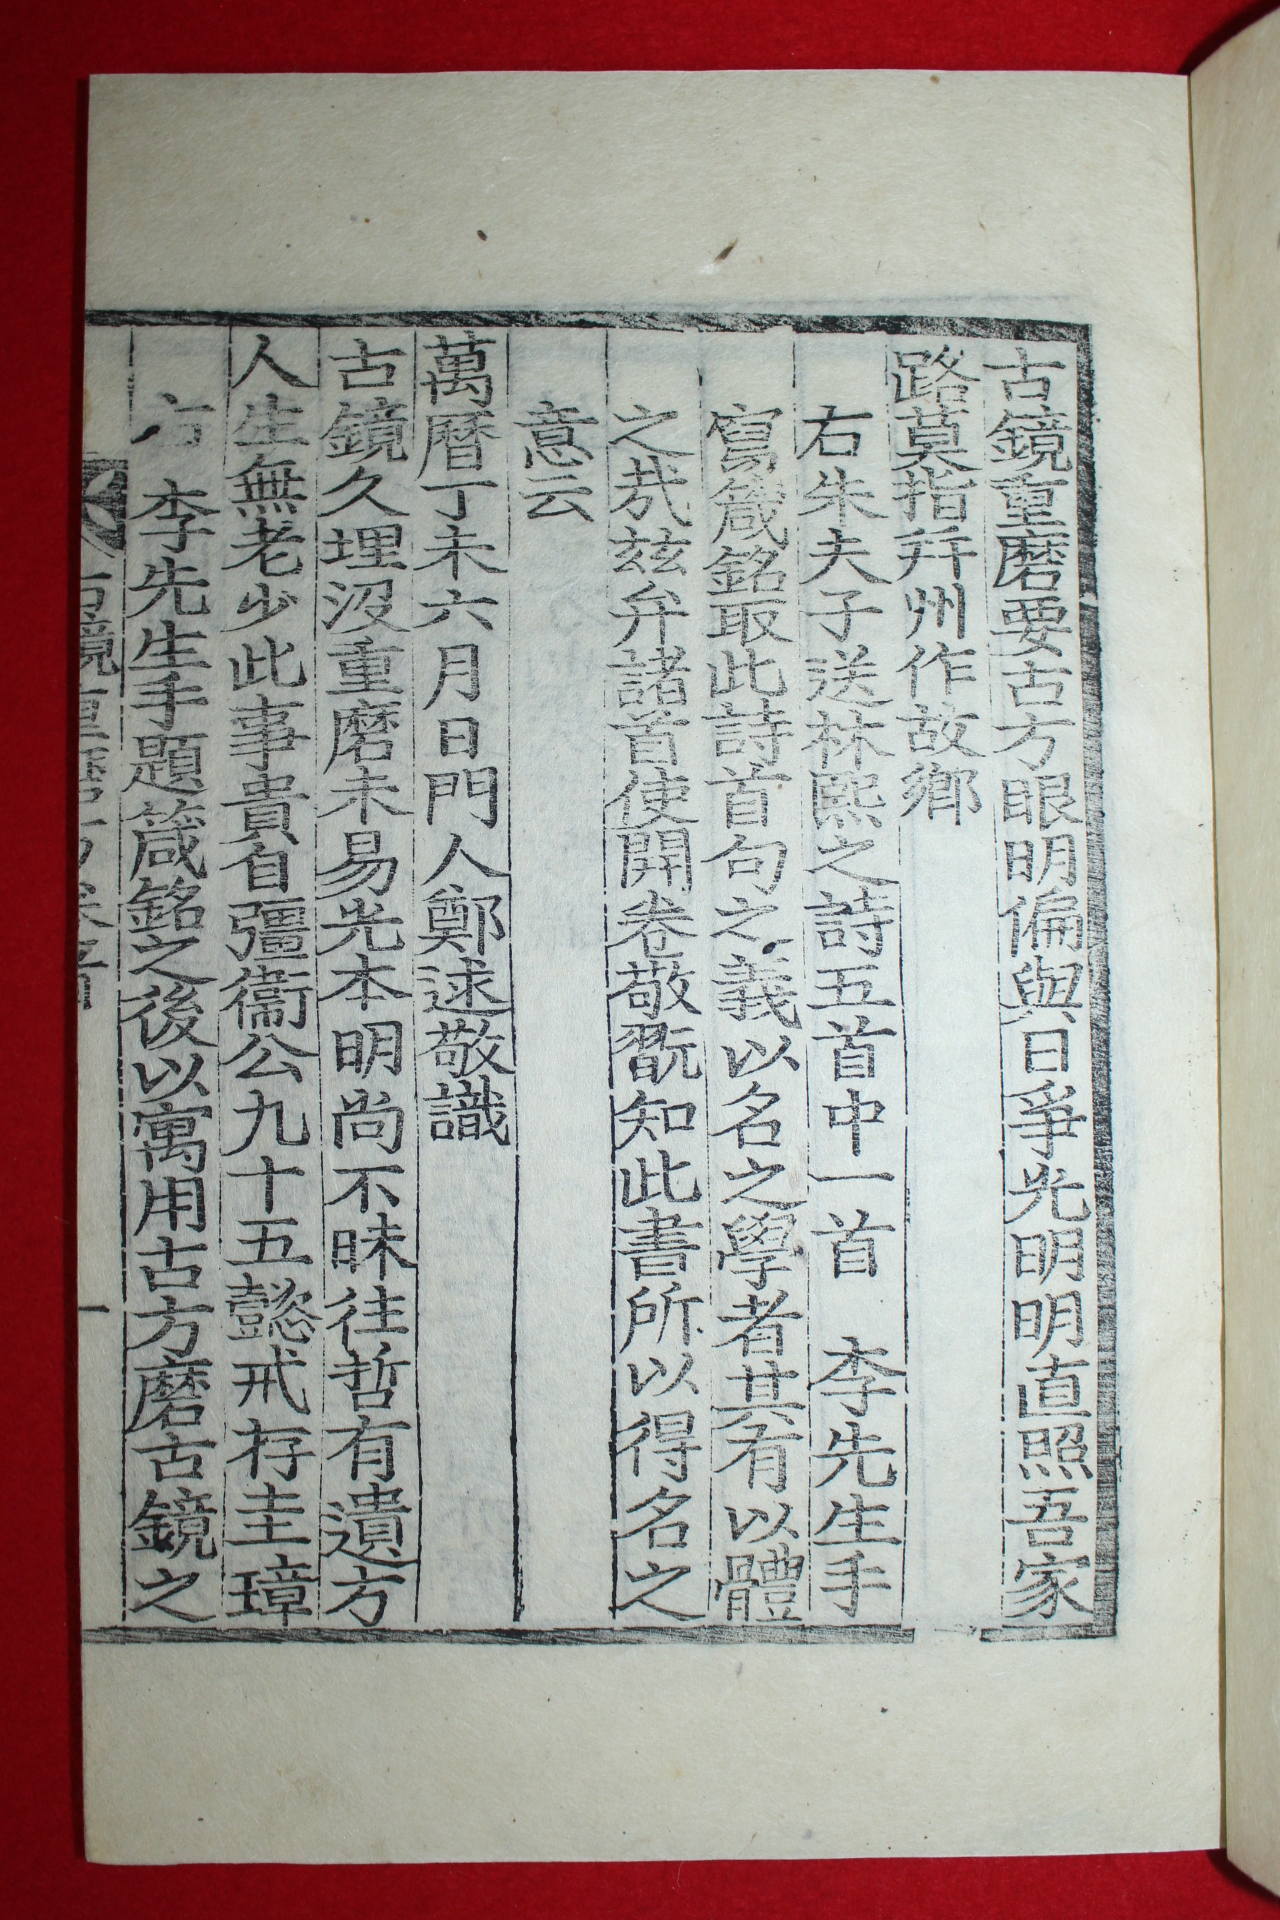 古鏡重磨要古方眼明偏與日爭光明明直照吾家
路莫指幷州作故鄉
右朱夫子送林熙之詩五首中一首 李先生手
寫箴銘取此詩首句之義以名之學者其有以體
之哉玆弁諸首使開卷敬翫知此書所以得名之
意云
萬曆丁未六月日門人鄭逑敬識
古鏡久埋沒重磨未易光本明尚不昧往哲有遺方
人生無老少此事貴自彊衞公九十五懿戒存圭璋
右 李先生手題箴銘之後以寓用古方磨古鏡之
古鏡重磨方